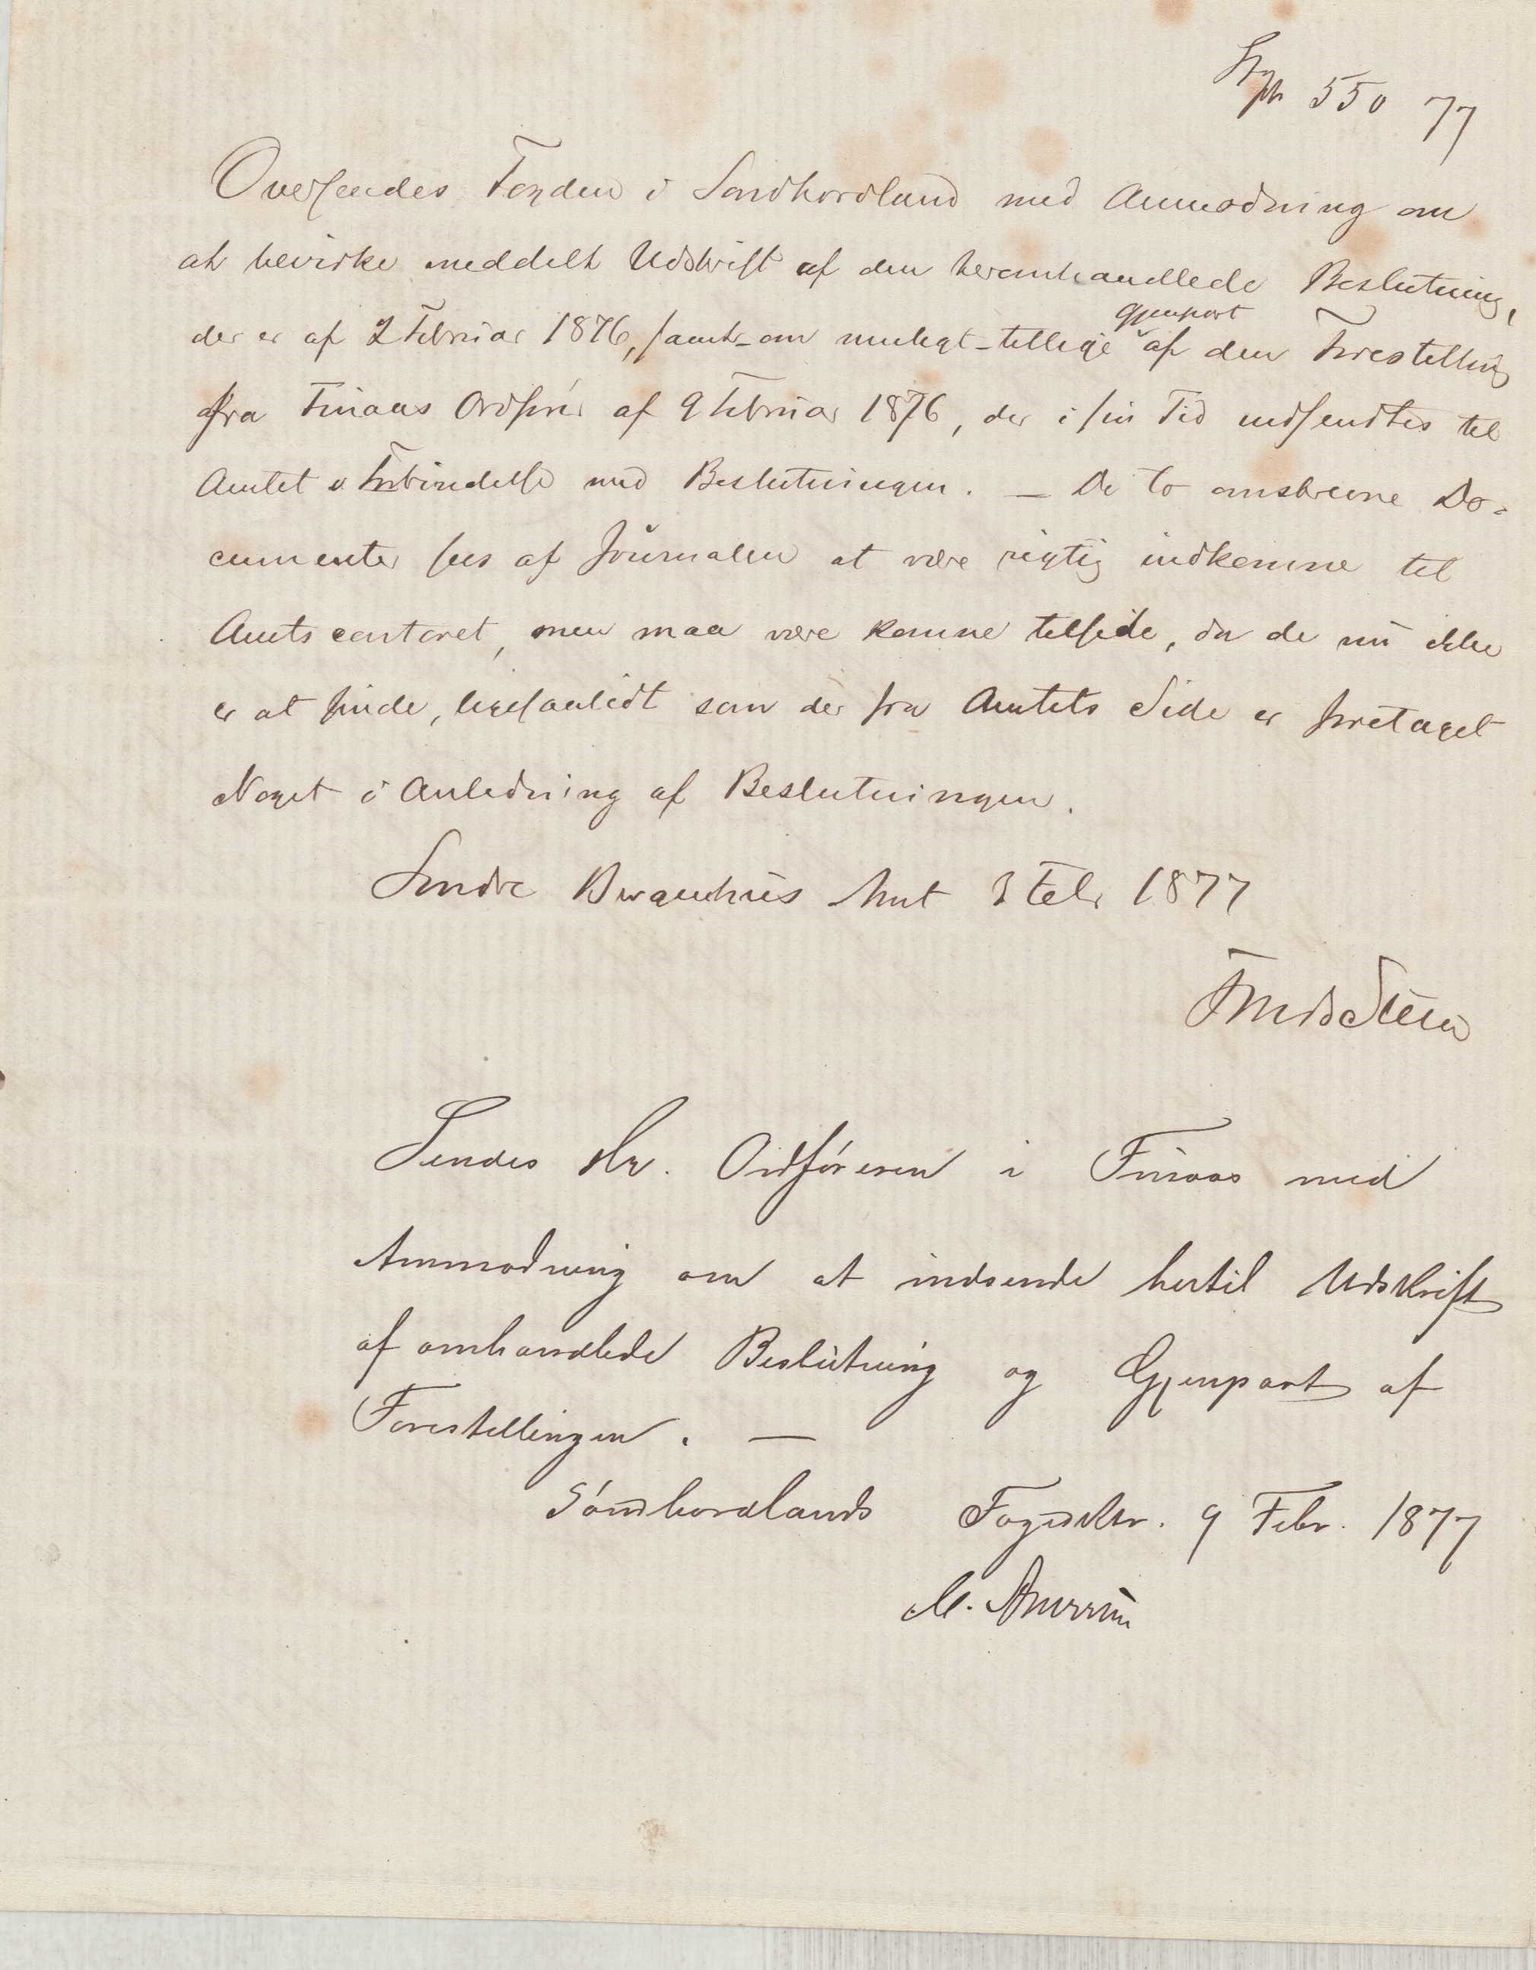 550 77
Oversendes Fogden i Søndhordland med Anmodning om
at bevirke meddelt Udskrift af den heromhandlede Beslutning,
der er af 2 Februar 1876, samt om muligt tillige Gjenpart af den Forestilling
fra Finaas Ordfører af 9 Februar 1876, der i sin Tid indsendtes til
Amtet i Forbindelse med Beslutningen. — De to omskrevne Do-
cumenter sees af Journalen at være rigtig indkomne til
Amtscontoret, men maa være komne tilside, da de nu ikke
er at finde, ligesaalidt som der fra Amtets Side er foretaget
Noget i Anledning af Beslutningen.
Søndre Bergenhus Amt 3 Febr 1877
Sendes Hr. Ordføreren i Finaas med
Anmodning om at indsende hertil Udskrift
af omhandlede Beslutning og Gjenpart af
Forestillingen. —
Søndhordlands Fogedktr. 9 Febr. 1877